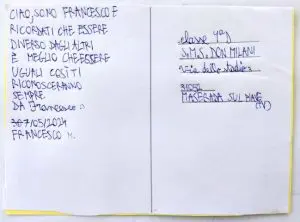 CIAO, SONO FRANCESCO E
RICORDATI CHE ESSERE
DIVERSO DAGLI ALTRI
È MEGLIO CHE ESSERE
UGUALI COSÌ TI
RICONOSCERANNO
SEMPRE
DA Francesco
7/05/2024
FRANCESCO M.
classe 4ªD
S.M.S. DON MILANI
via dello stadio
31052
MASERADA SUL
(TV)